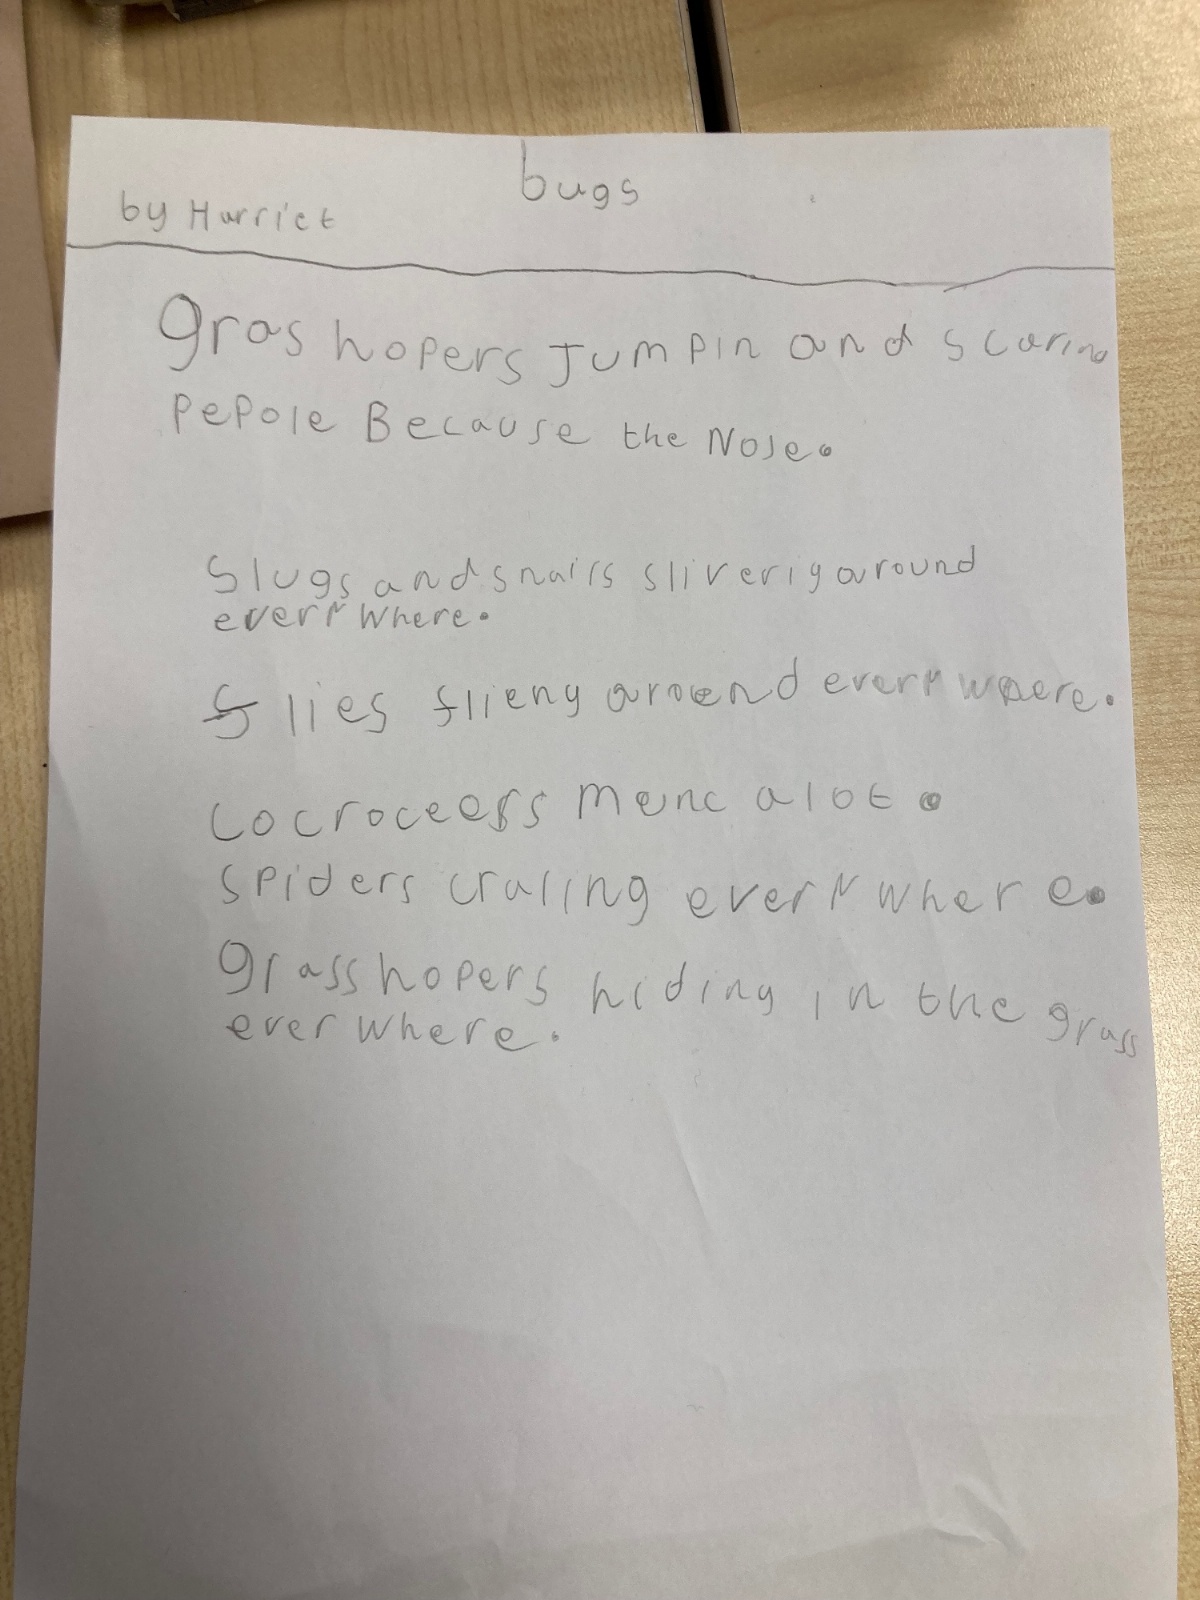 bugs
by Harriet
grashopers Jumpin and scaring
pepole Because the Nose.
Slugs and snails sliverig around
everywhere.
flies flieny around everywhere.
cocroceers menc alot.
spiders craling everywhere.
grasshopers hiding in the grass
everwhere.